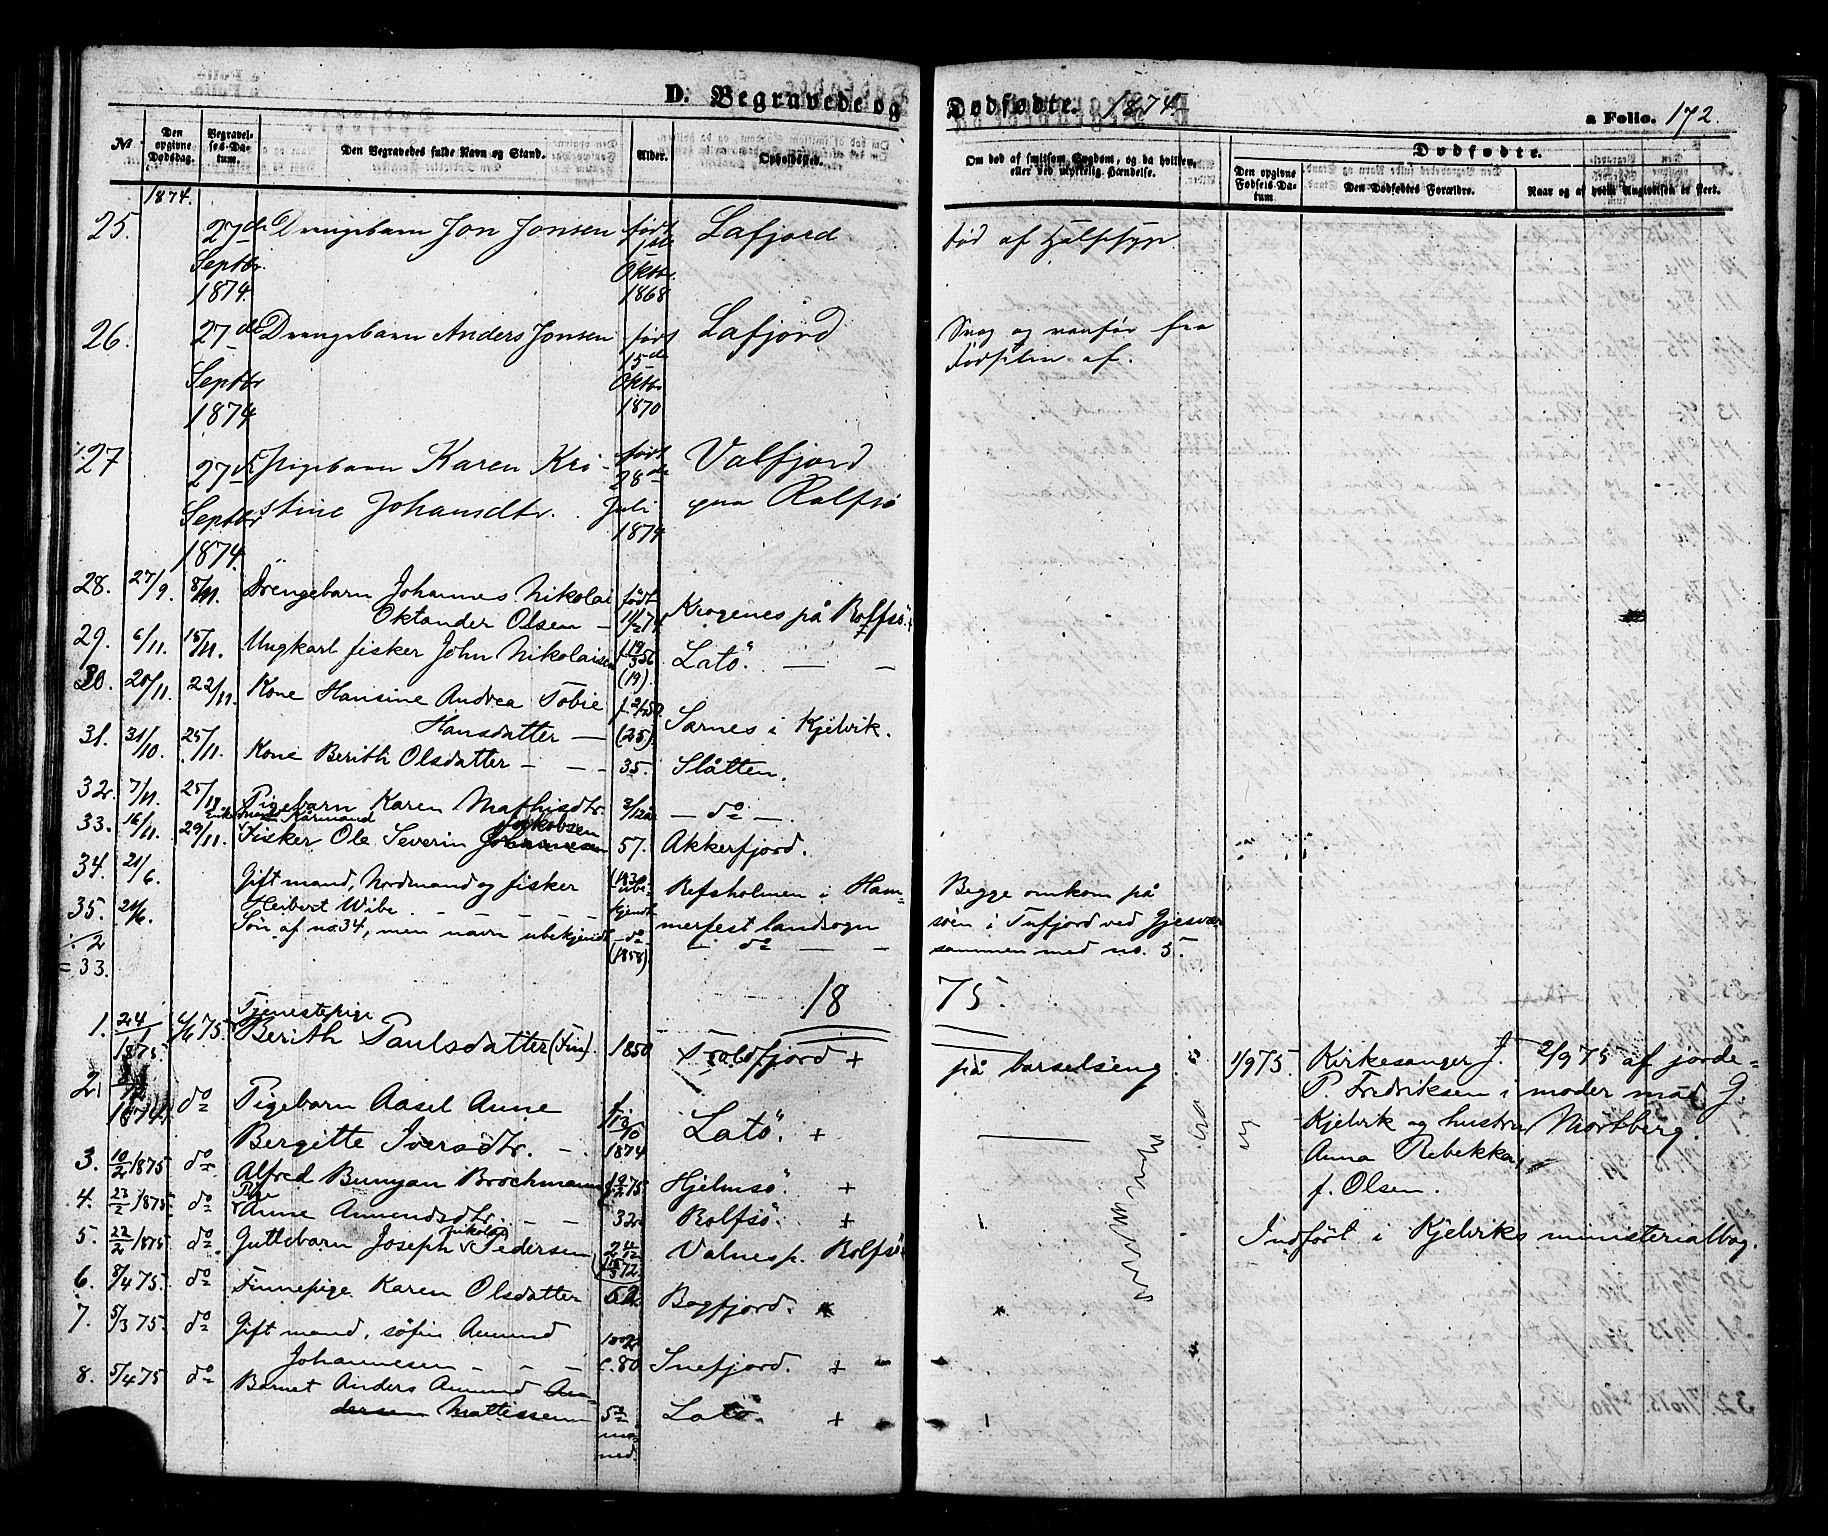 D. Begravede og Dødfødte. 1874. a Folio. 172.
No. Den opgivne Dødsdag. Begravelses-Datum. Den Begravedes fulde Navn og Stand. Alder. Opholdssted. Om død af smitsom Sygdom, og da hvilken, eller ved ulykkelig Hændelse.
Dødfødte.
Den opgivne Fødsels-Datum. Den Dødfødtes Forældre. Naar og af hvem Angivelsen er skeet.
1874.
25. 27de Drengebarn Jon Jonsen født Lafjord Død af Halssyge
Septbr. 1ste
1874. Oktbr. 1868
26. 27de Drengebarn Anders Jonsen født Lafjord Svag og vanfør fra
Septbr 15de Fødselen af.
1874 Oktbr 1870
27 27de Pigebarn Karen Kri- født Valfjord
Septbr stine Johansdtr. 28de Juli paa Rolfsø
1874. 1874
28. 27/9. 8/11. Drengebarn Johannes Nikolai født
Oktander Olsen — 11/2 74 Krogenes på Rolfsö.
29. 6/11. 15/11. Ungkarl fisker John Nikolaisen f. 19/3 56 Latö. — —
(19).
30. 20/11. 22/11. Kone Hansine Andrea Tobie
Hansdatter — (25). Sarnes i Kjelvik.
31. 31/10. 25/11. Kone Berith Olsdatter — — 35. Slåtten.
32. 7/11. 25/11 Pigebarn Karen Mathisdtr. 3/12 år — do —
33. 16/11. 29/11. Enkemand Kvænmand
Fisker Ole Severin Johannesen Jakobsen 57. Akkerfjord.
34. 21/6. Gift mand, Nordmand og fisker (1830 Refsholmen i Ham- Begge omkom på
Heibert Wibe. ube- merfest landsogn söen i Tufjord ved Gjesvær
35. 21/6. Sön af no. 34, men navn ubekjendt kjendt — do — sammen med no. 5.
÷ 2 — do —
= 33. (1858)
18 75.
1. 24/1 1875. 6/6 75. Tjenestepige
Berith Paulsdatter (Fin). 1850 Troldfjord + på barselseng 1/9 75. Kirkesanger J. 2/9 75 af jorde-
P. Fredriksen i moder mad. G.
Kjelvik og hustru Mörtberg.
Anna Rebekka,
f. Olsen.
2. 1874. do Pigebarn Aasel Anne
Bergitte Iversdtr. — f. 13/10 1874 Latö. +
3. 10/2 1875 do Alfred Bunyan Brochmann f. 9/2 75 Hjelmsö. +
4. 23/2 1875. do Pige
Anne Amundsdtr. — — 32 Rolfsö. +
5. 22/2 1875 do Guttebarn Joseph Nikolai Pedersen 2 11/12 Valnes p. Rolfsö Indfört i Kjelviks ministerialbog.
72.
6. 8/4 75. do Finnepige Karen Olsdatter 62 Bogfjord. *
7. 5/3 75. do Gift mand, söfin Amund
Johannesen — — — c. 80 Snefjord. +
8. 5/4 75 do Barnet Anders Amund An-
dersen Mattissen 5 må-ned. Latö. +